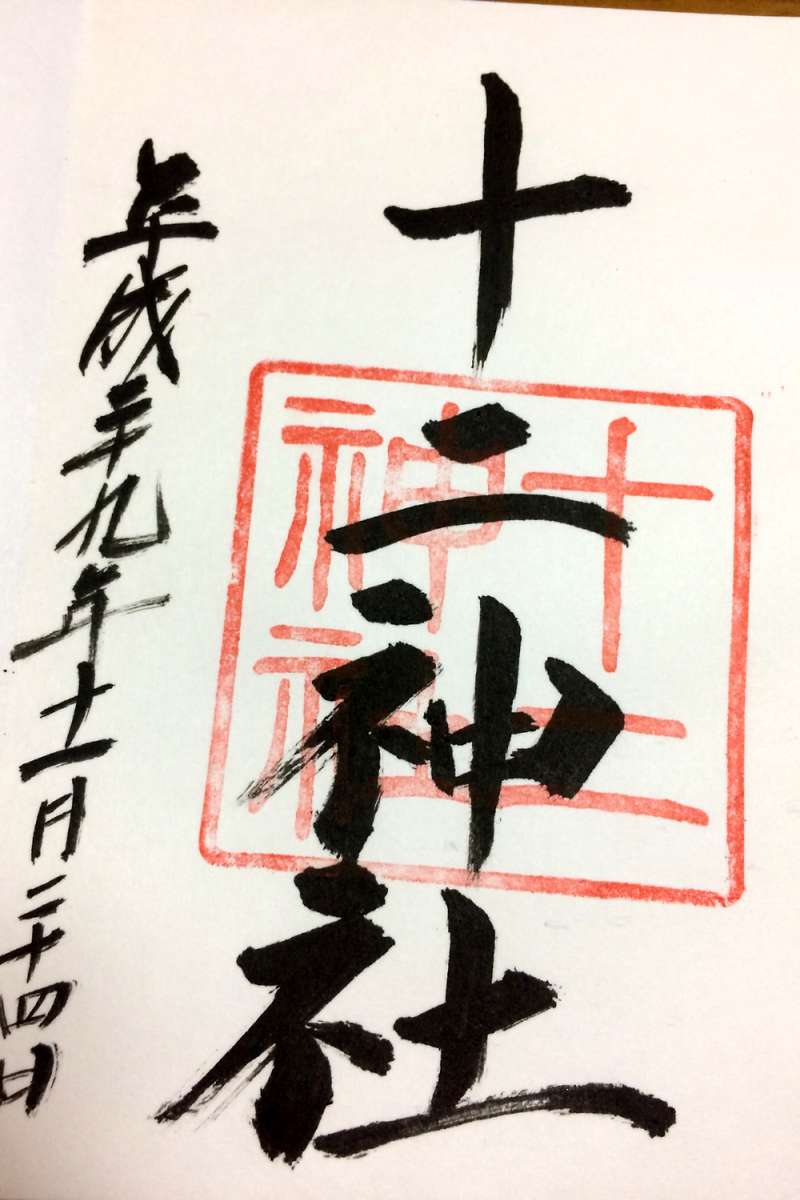 十二神社
十二
神社
平成二十九年十一月二十四日